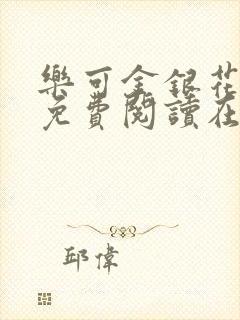 樂可金銀花
免費閱讀在
邱偉